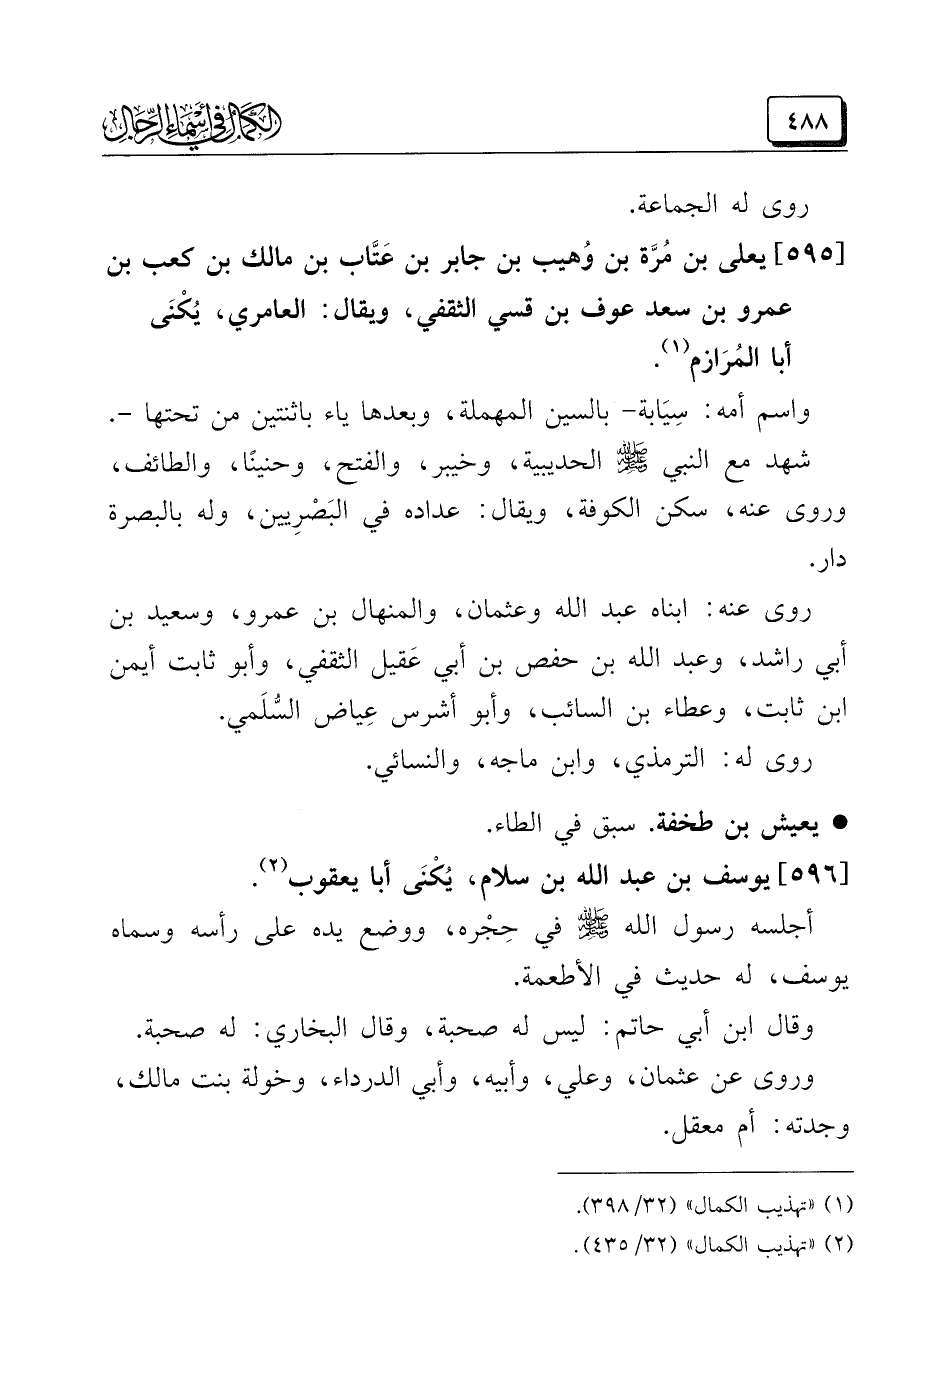 ٤٨٨
الكمال في أسماء الرجال
روى له الجماعة.
[٥٩٥] يعلى بن مُرَّة بن وُهيب بن جابر بن عَتَّاب بن مالك بن كعب بن
عمرو بن سعد عوف بن قسي الثقفي، ويقال: العامري، يُكْنَى
أبا المُرَازم(١).
واسم أمه: سِيَابة- بالسين المهملة، وبعدها ياء باثنتين من تحتها -.
شهد مع النبي ﷺ الحديبية، وخيبر، والفتح، وحنينًا، والطائف،
وروى عنه، سكن الكوفة، ويقال: عداده في البَصْرِيين، وله بالبصرة
دار.
روى عنه: ابناه عبد الله وعثمان، والمنهال بن عمرو، وسعيد بن
أبي راشد، وعبد الله بن حفص بن أبي عَقيل الثقفي، وأبو ثابت أيمن
ابن ثابت، وعطاء بن السائب، وأبو أشرس عِياض السُّلَمي.
روى له: الترمذي، وابن ماجه، والنسائي.
● يعيش بن طخفة. سبق في الطاء.
[٥٩٦] يوسف بن عبد الله بن سلام، يُكْنَى أبا يعقوب(٢).
أجلسه رسول الله ﷺ في حِجْره، ووضع يده على رأسه وسماه
يوسف، له حديث في الأطعمة.
وقال ابن أبي حاتم: ليس له صحبة، وقال البخاري: له صحبة.
وروى عن عثمان، وعلي، وأبيه، وأبي الدرداء، وخولة بنت مالك،
وجدته: أم معقل.
(١) «تهذيب الكمال» (٣٢/ ٣٩٨).
(٢) «تهذيب الكمال» (٣٢/ ٤٣٥).